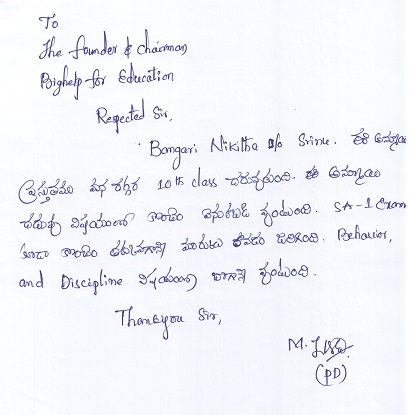 To
The founder & chairman
Bighelp for Education
Respected Sir,
Bangari Nikitha D/o Srinu. ఈ అమ్మాయి
ప్రస్తుతము మన దగ్గర 10th class చదువుతుంది. ఈ అమ్మాయి
చదువు విషయంలో కొంచెం వెనుకబడి వుంటుంది. SA-1 Exam
కూడా కొంచెం తక్కువగానే మార్కులు రావడం జరిగింది. Behavior,
and Discipline విషయంలో బాగానే వుంటుంది.
Thankyou Sir,
M.
(PD)